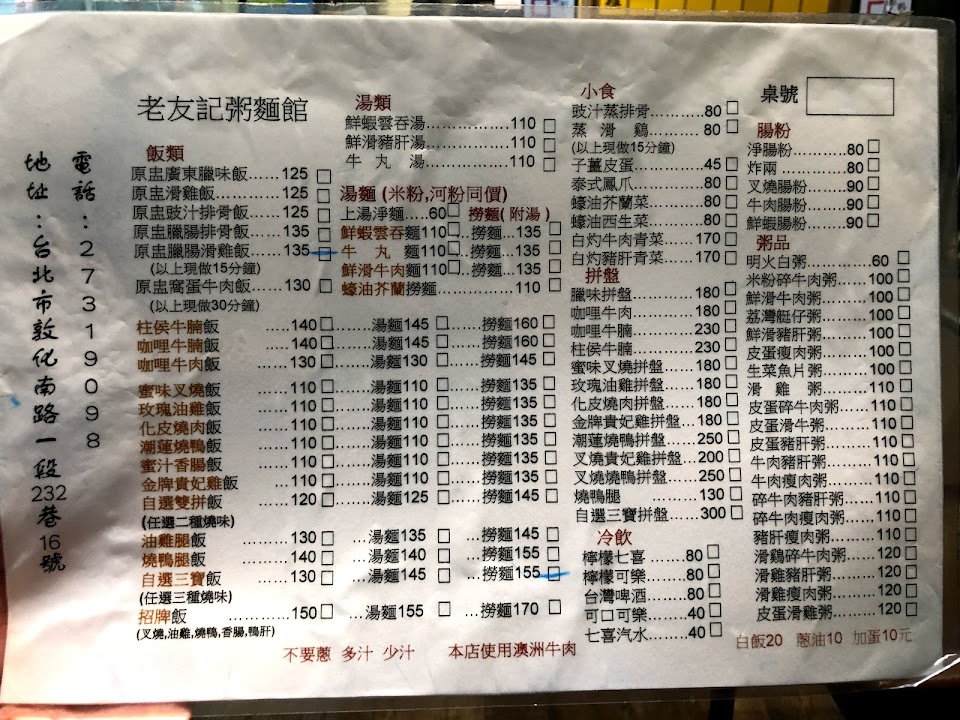 老友記粥麵館
電話:27319098
地址:台北市敦化南路一段232巷16號
飯類
原盅廣東臘味飯......125
原盅滑雞飯......125
原盅豉汁排骨飯......125
原盅臘腸排骨飯......135
原盅臘腸滑雞飯......135
(以上現做15分鐘)
原盅窩蛋牛肉飯......130
(以上現做30分鐘)
湯類
鮮蝦雲吞湯......110
鮮滑豬肝湯......110
牛丸湯......110
湯麵(米粉,河粉同價)
上湯淨麵....60 撈麵(附湯)
鮮蝦雲吞麵110...撈麵...135
牛丸麵110...撈麵...135
鮮滑牛肉麵110...撈麵...135
蠔油芥蘭撈麵......110
柱侯牛腩飯......140 湯麵145 撈麵160
咖哩牛腩飯......140 湯麵145 撈麵160
咖哩牛肉飯......130 湯麵130 撈麵145
蜜味叉燒飯......110 湯麵110 撈麵135
玫瑰油雞飯......110 湯麵110 撈麵135
化皮燒肉飯......110 湯麵110 撈麵135
潮蓮燒鴨飯......110 湯麵110 撈麵135
蜜汁香腸飯......110 湯麵110 撈麵135
金牌貴妃雞飯......110 湯麵110 撈麵135
自選雙拼飯......120 湯麵125 撈麵145
(任選二種燒味)
油雞腿飯......130 湯麵135 撈麵145
燒鴨腿飯......140 湯麵140 撈麵155
自選三寶飯......130 湯麵145 撈麵155
(任選三種燒味)
招牌飯......150 湯麵155 撈麵170
(叉燒,油雞,燒鴨,香腸,鴨肝)
不要蔥 多汁 少汁 本店使用澳洲牛肉
小食
豉汁蒸排骨......80
蒸滑鷄......80
(以上現做15分鐘)
子薑皮蛋......45
泰式鳳爪......80
蠔油芥蘭菜......80
蠔油西生菜......80
白灼牛肉青菜......170
白灼豬肝青菜......170
拼盤
臘味拼盤......180
咖哩牛肉......180
咖哩牛腩......230
柱侯牛腩......230
蜜味叉燒拼盤......180
玫瑰油雞拼盤......180
化皮燒肉拼盤......180
金牌貴妃雞拼盤...180
潮蓮燒鴨拼盤......250
叉燒貴妃雞拼盤...200
叉燒燒鴨拼盤......250
燒鴨腿......130
自選三寶拼盤......300
冷飲
檸檬七喜......80
檸檬可樂......80
台灣啤酒......80
可口可樂......40
七喜汽水......40
桌號
腸粉
淨腸粉......80
炸兩......80
叉燒腸粉......90
牛肉腸粉......90
鮮蝦腸粉......90
粥品
明火白粥......60
米粉碎牛肉粥......100
鮮滑牛肉粥......100
荔灣艇仔粥......100
鮮滑豬肝粥......100
皮蛋瘦肉粥......100
生菜魚片粥......100
滑雞粥......110
皮蛋碎牛肉粥......110
皮蛋滑牛粥......110
皮蛋豬肝粥......110
牛肉豬肝粥......110
牛肉瘦肉粥......110
碎牛肉豬肝粥......110
碎牛肉瘦肉粥......110
豬肝瘦肉粥......110
滑鷄碎牛肉粥......120
滑雞豬肝粥......120
滑雞瘦肉粥......120
皮蛋滑雞粥......120
白飯20 蔥油10 加蛋10元